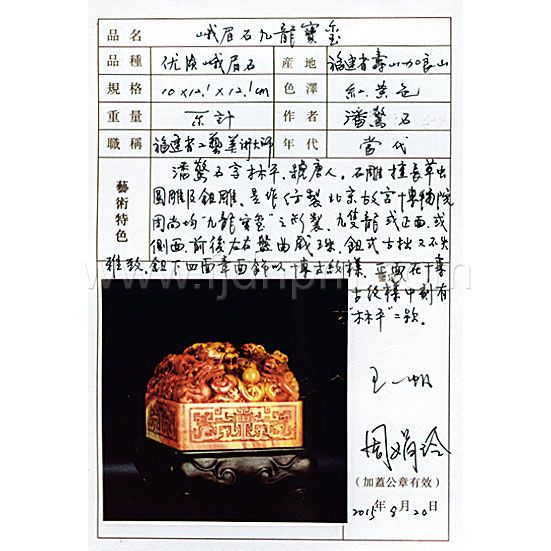 品名 峨眉石九龍寶璽
品種 优质峨眉石 産地 福建省壽山加良山
規格 10×12.1×12.1cm 色澤 红黄色
重量 不計 作者 潘驚石
職稱 福建省工藝美術大師 年代 當代
藝術特色
潘驚石字林平,號唐人。石雕擅長草虫
圓雕及鈕雕。是作仔製北京故宫博物院
周尚均"九龍寶璽"之所製,九隻龍或正面,或
側面,前後左右盤曲戲珠,鈕式古拙又不失
雅致,鈕下四面章面飾以博古紋樣,正面在博
古紋樣中刻有
"林平"二款。
王一帆
周娟玲
(加蓋公章有效)
2015年8月20日